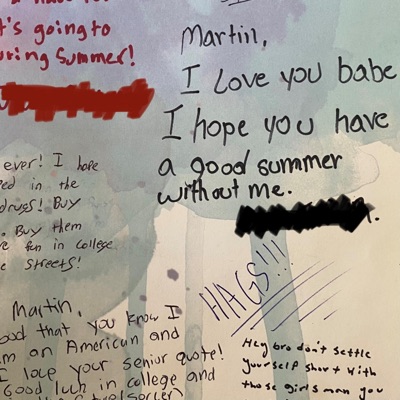 t's going to
uring Summer!
Martin,
I love you babe
I hope you have
a good summer
without me.
ever! I hope
ed in the
drugs! Buy
. Buy them
e fun in college
e streets!
HAGS!!!
Martin,
ood that you know I
m an American and
I love your senior quote!
Good luck in college and
Hey bro don't settle
yourself short with
those girls man you